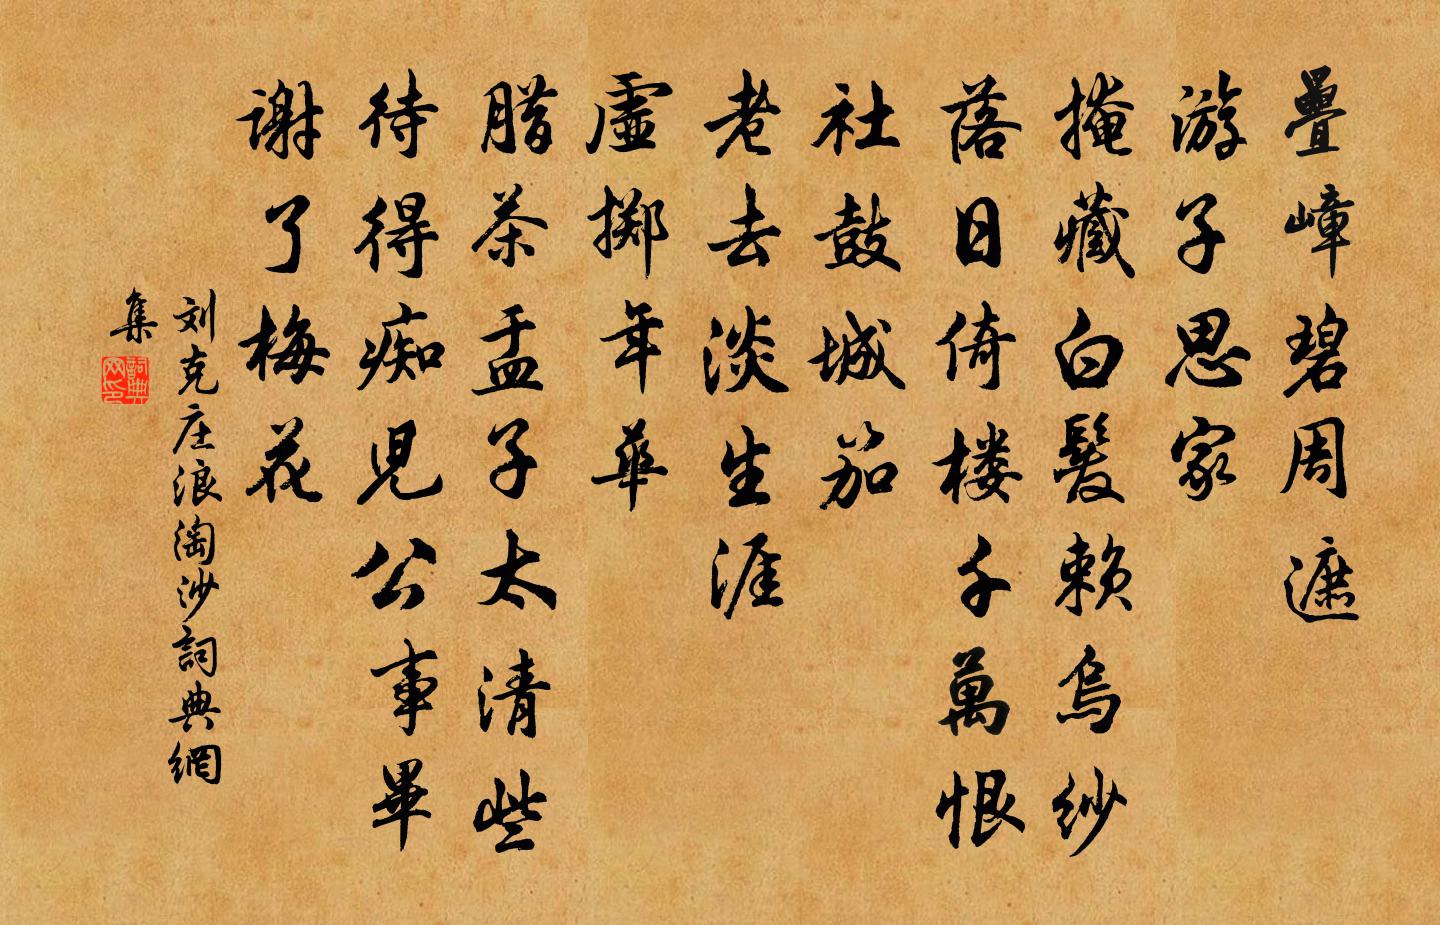 疊嶂碧周遮
游子思家
掩藏白髮賴烏紗
落日倚楼千萬恨
社鼓城笳
老去淡生涯
虛擲年華
腊茶盂子太清些
待得痴児公事畢
谢了梅花
刘克庄浪淘沙詞典網
集
詞典网印